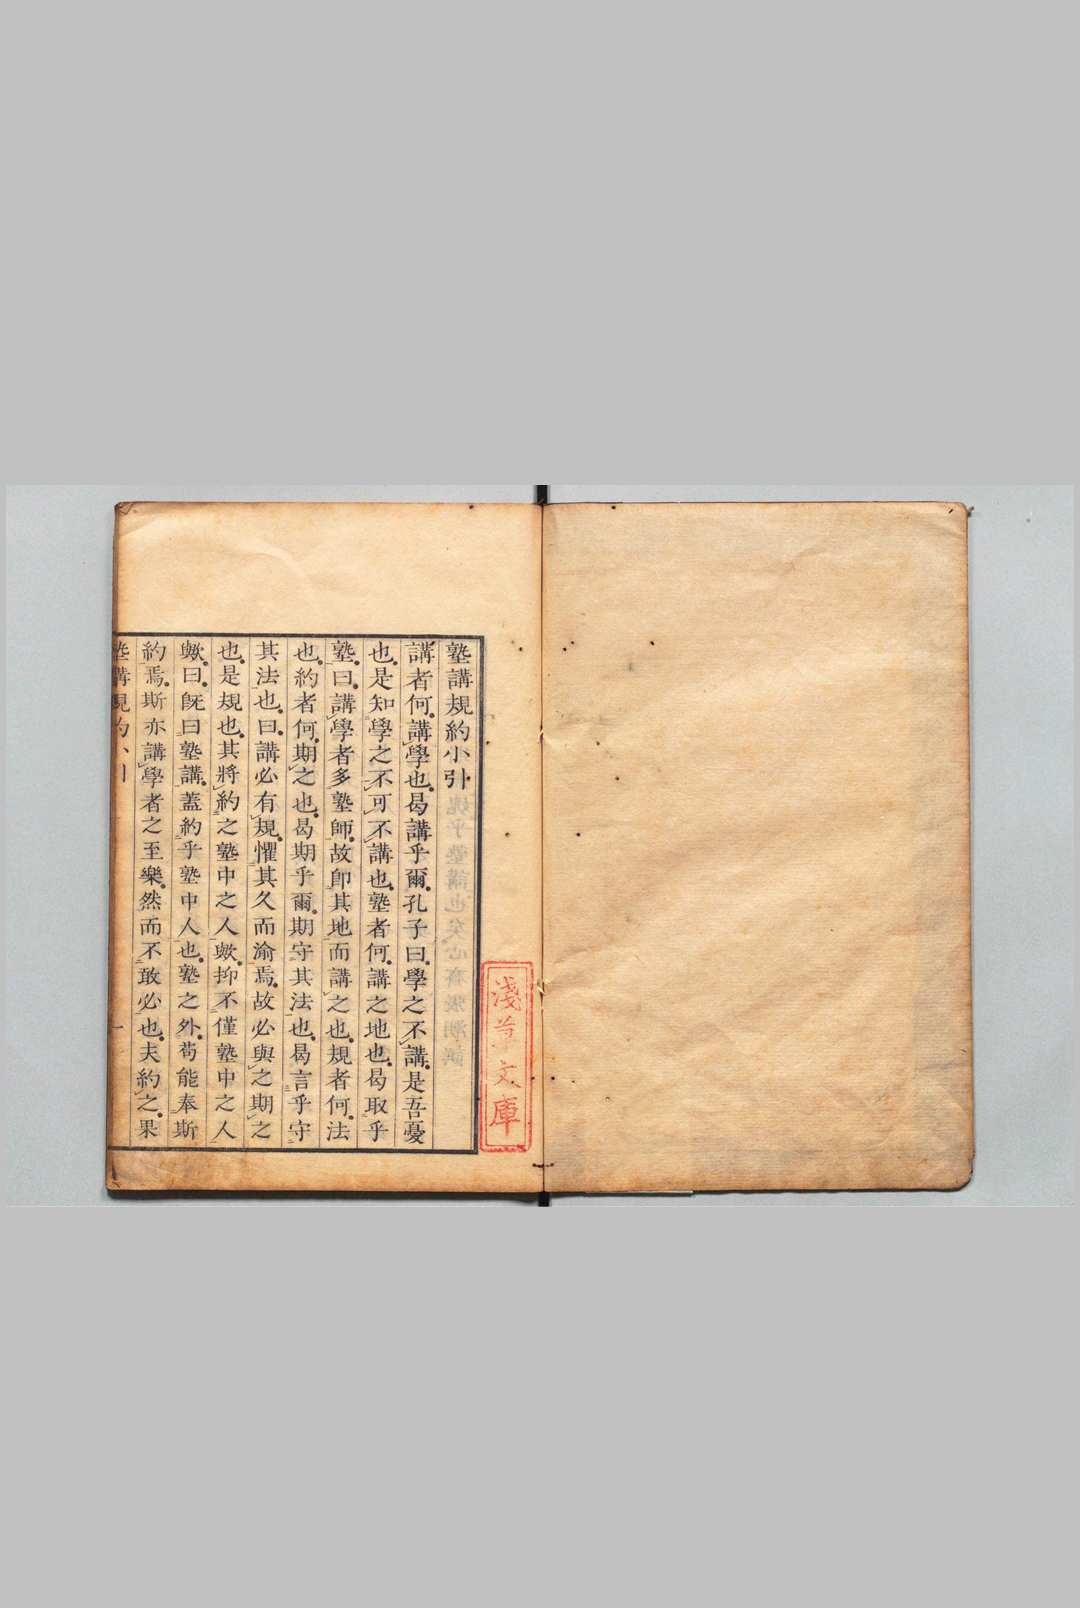 塾講規約小引
講者何講學也曷講乎爾孔子曰學之不講是吾憂
也是知學之不可不講也塾者何講之地也曷取乎
塾曰講學者多塾師故卽其地而講之也規者何法
也約者何期之也曷期乎爾期守其法也曷言乎守
其法也曰講必有規懼其久而渝焉故必與之期之
也是規也其將約之塾中之人歟抑不僅塾中之人
歟曰旣曰塾講蓋約乎塾中人也塾之外苟能奉斯
約焉斯亦講學者之至樂然而不敢必也夫約之果
塾講規約小引
一
淺草文庫